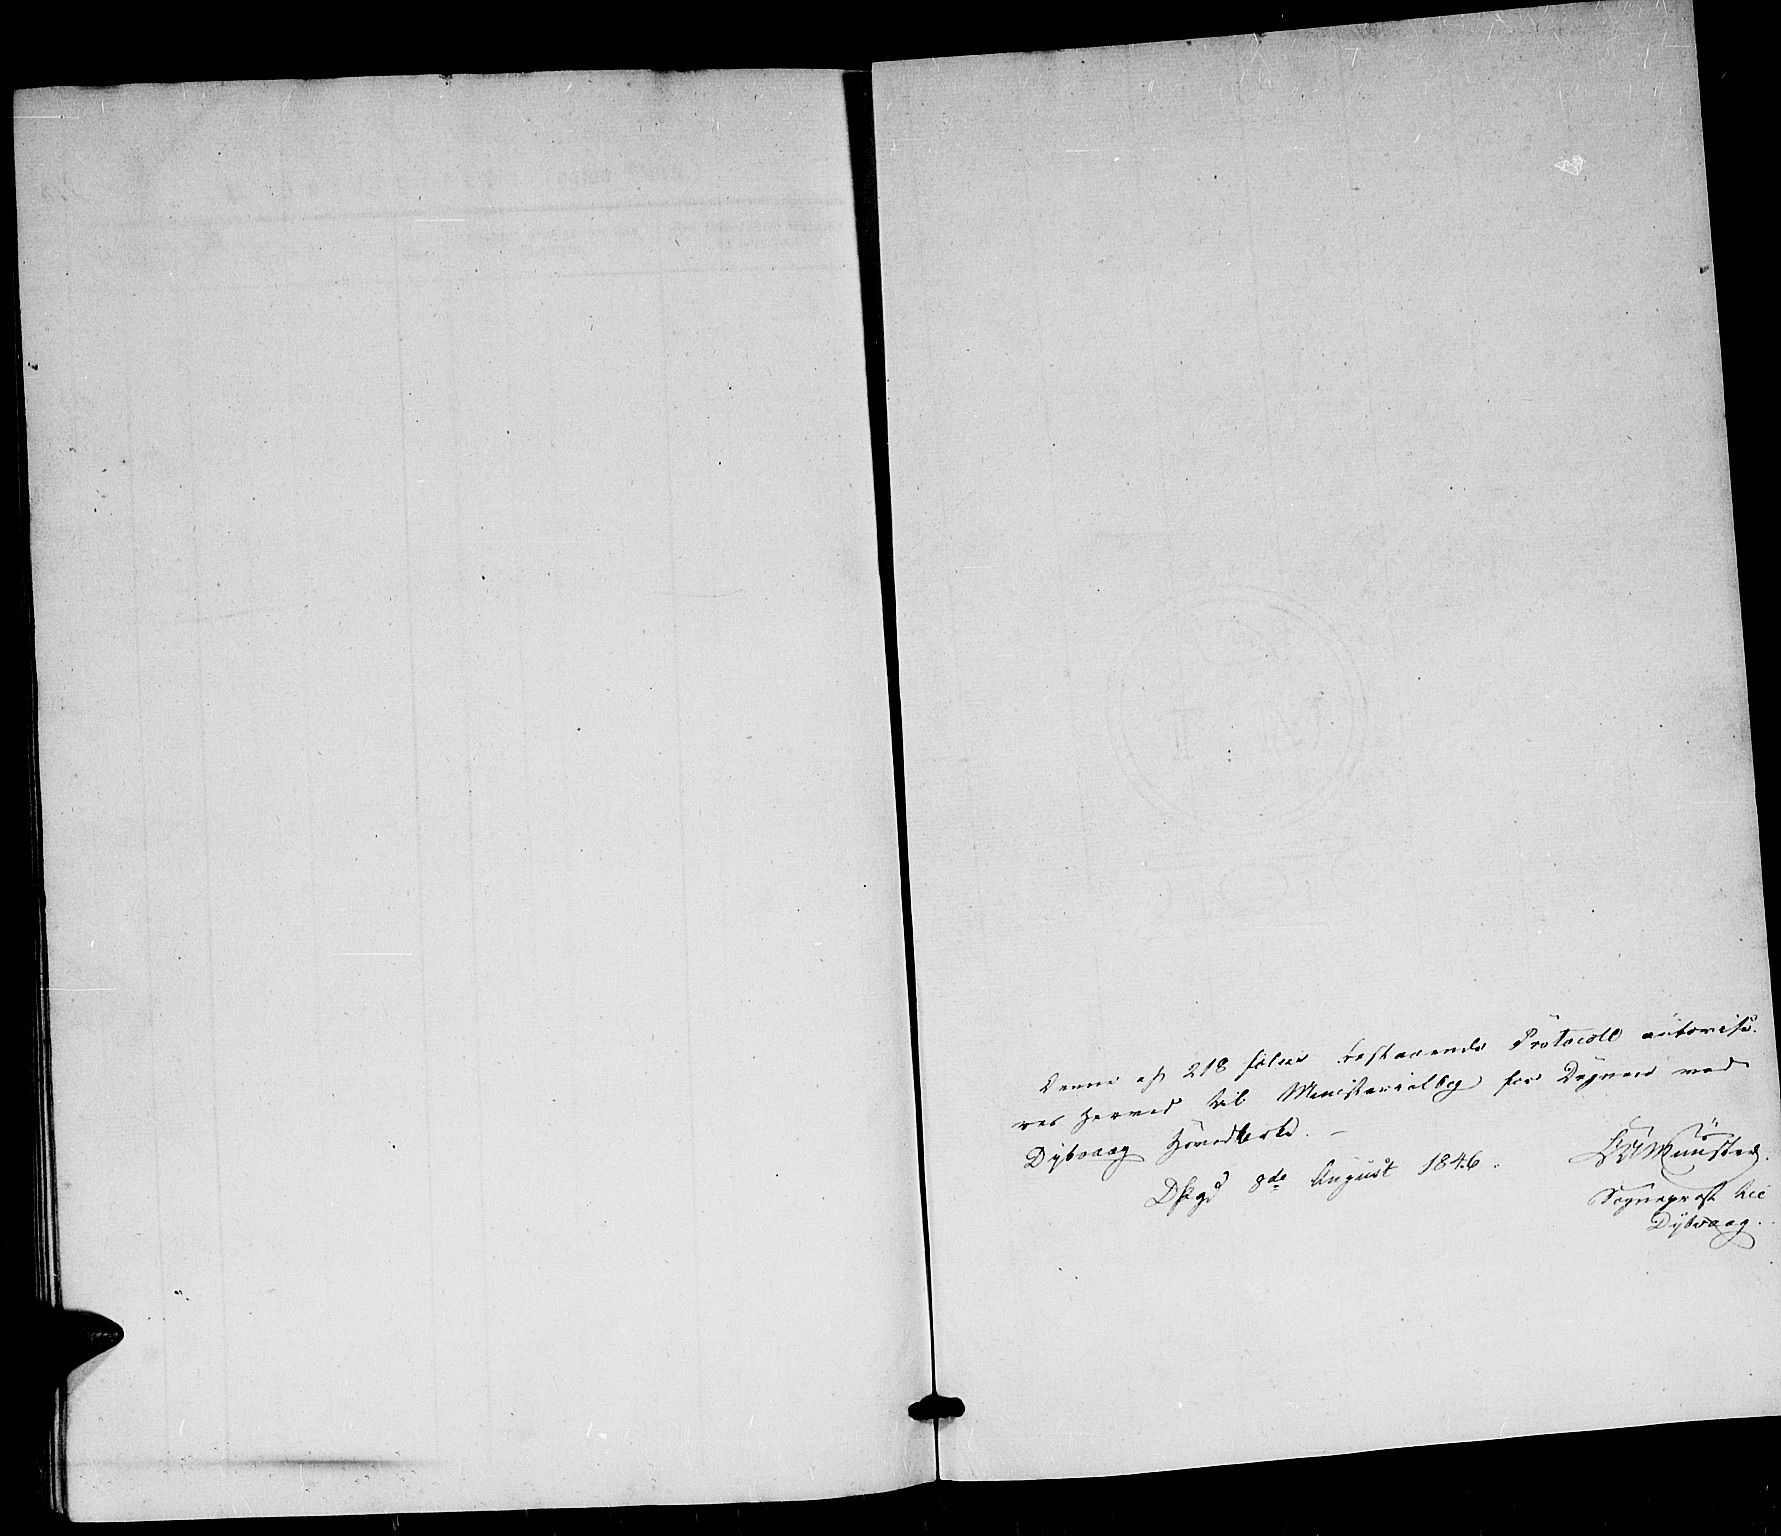 Denne af 218 folier bestaaende Protocoll autorise-
res herved til Ministerialbog for Degnen ved
Dybvaag Hovedkirke. –
8de August 1846.
Münster.
Sognepræst til
Dybvaag.